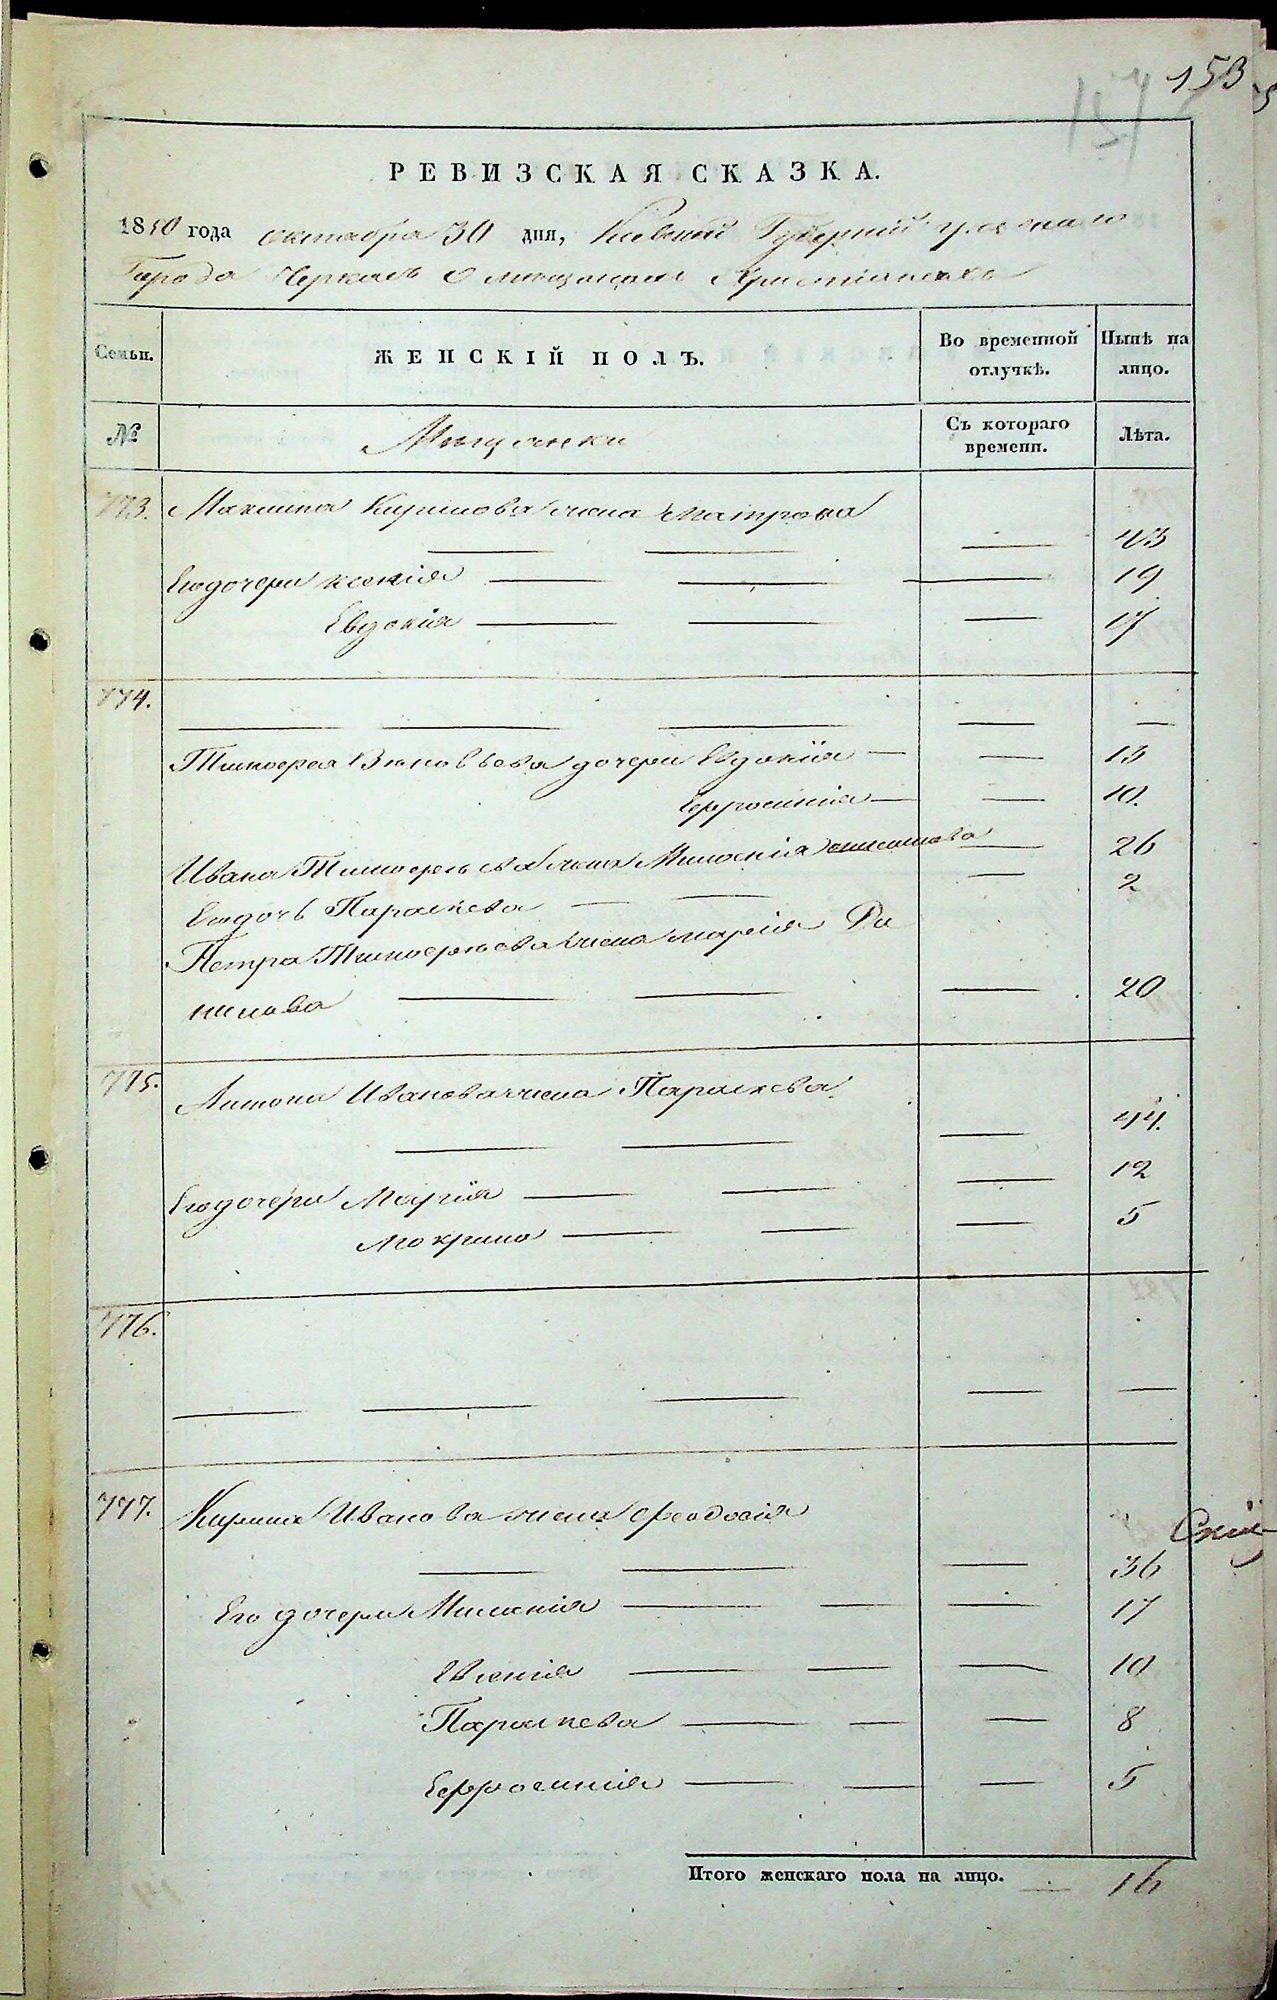 153
РЕВИЗСКАЯ СКАЗКА.
1850 года октября 30 дня, Киевской Губернии уезднаго
Города Черкасъ О мещанахъ Христіанахъ
Семьи.
ЖЕНСКІЙ ПОЛЪ.
Во временной отлучкѣ.
Нынѣ на лицо.
№
Мещанки
Съ котораго времени.
Лѣта.
773. Максима Кирилова жена Матрона
43
Его дочери Ксенія 19
Евдокія 17
774.
Тимофея Зиновьева дочери Евдокія 13
Ефросинія 10.
Ивана Тимофеева жена Миланія 26
Его дочь Параскева 2
Петра Тимофеева жена Марія Да
нилова 20
775. Антона Иванова жена Параскева
44.
Его дочери Марія 12
Мокрина 5
776.
777. Кирила Иванова жена Феодосія
36
Его дочери Миланія 17
Ксенія 10
Параскева 8
Ефросинія 5
Итого женскаго пола на лицо. 16